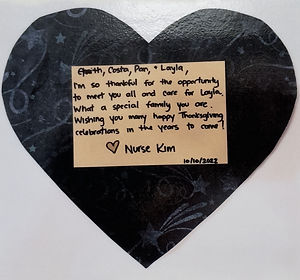 Costa, Pan, + Layla,
I'm so thankful for the opportunity
to meet you all and care for Layla.
What a special family you are.
Wishing you many happy Thanksgiving
celebrations in the years to come!
♡ Nurse Kim
10/10/2022